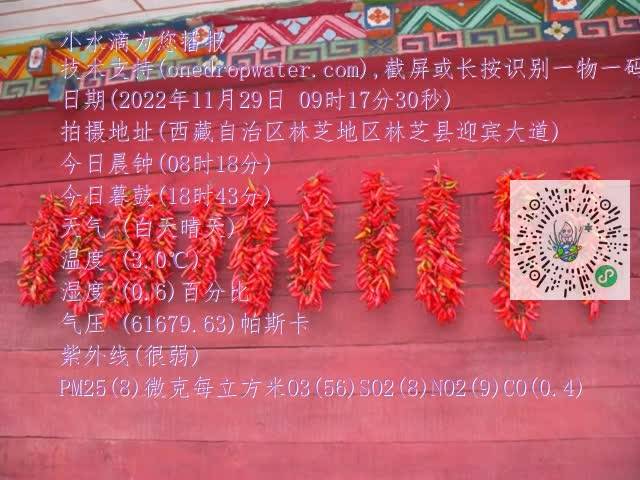 小水滴为您播报
技术支持(onedropwater.com),截屏或长按识别一物一码
日期(2022年11月29日 09时17分30秒)
拍摄地址(西藏自治区林芝地区林芝县迎宾大道)
今日晨钟(08时18分)
今日暮鼓(18时43分)
天气 (白天晴天)
温度 (3.0℃)
湿度 (0.6)百分比
气压 (61679.63)帕斯卡
紫外线(很弱)
PM25(8)微克每立方米O3(56)SO2(8)NO2(9)CO(0.4)